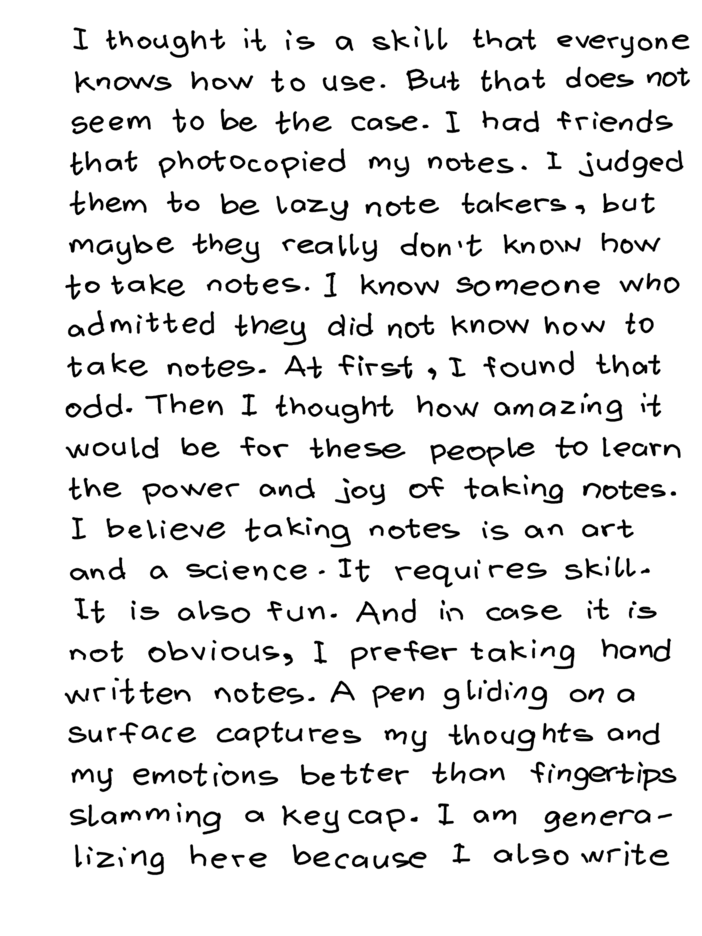 I thought it is a skill that everyone
knows how to use. But that does not
seem to be the case. I had friends
that photocopied my notes. I judged
them to be lazy note takers, but
maybe they really don't know how
to take notes. I know someone who
admitted they did not know how to
take notes. At first, I found that
odd. Then I thought how amazing it
would be for these people to learn
the power and joy of taking notes.
I believe taking notes is an art
and a science. It requires skill.
It is also fun. And in case it is
not obvious, I prefer taking hand
written notes. A pen gliding on a
surface captures my thoughts and
my emotions better than fingertips
slamming a key cap. I am genera-
lizing here because I also write